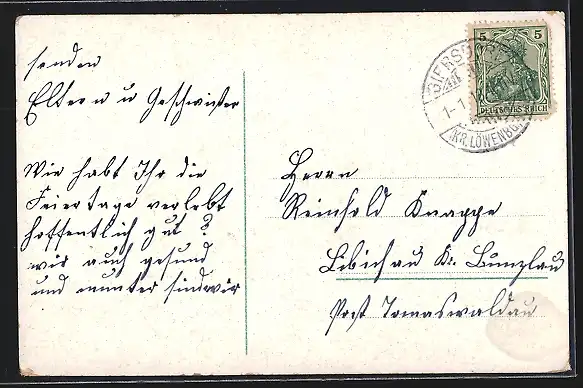 senden
Eltern u Geschwister
Wie habt Ihr die
Feiertage verlebt
hoffentlich gut?
wir auch gesund
und munter sind wir
5 5
DEUTSCHES REICH
GIERSDORF
1-1
(KR. LÖWENBG.
Herrn
Reinhold Knappe
Libichau Kr. Bunzlau
Post Tomaswaldau